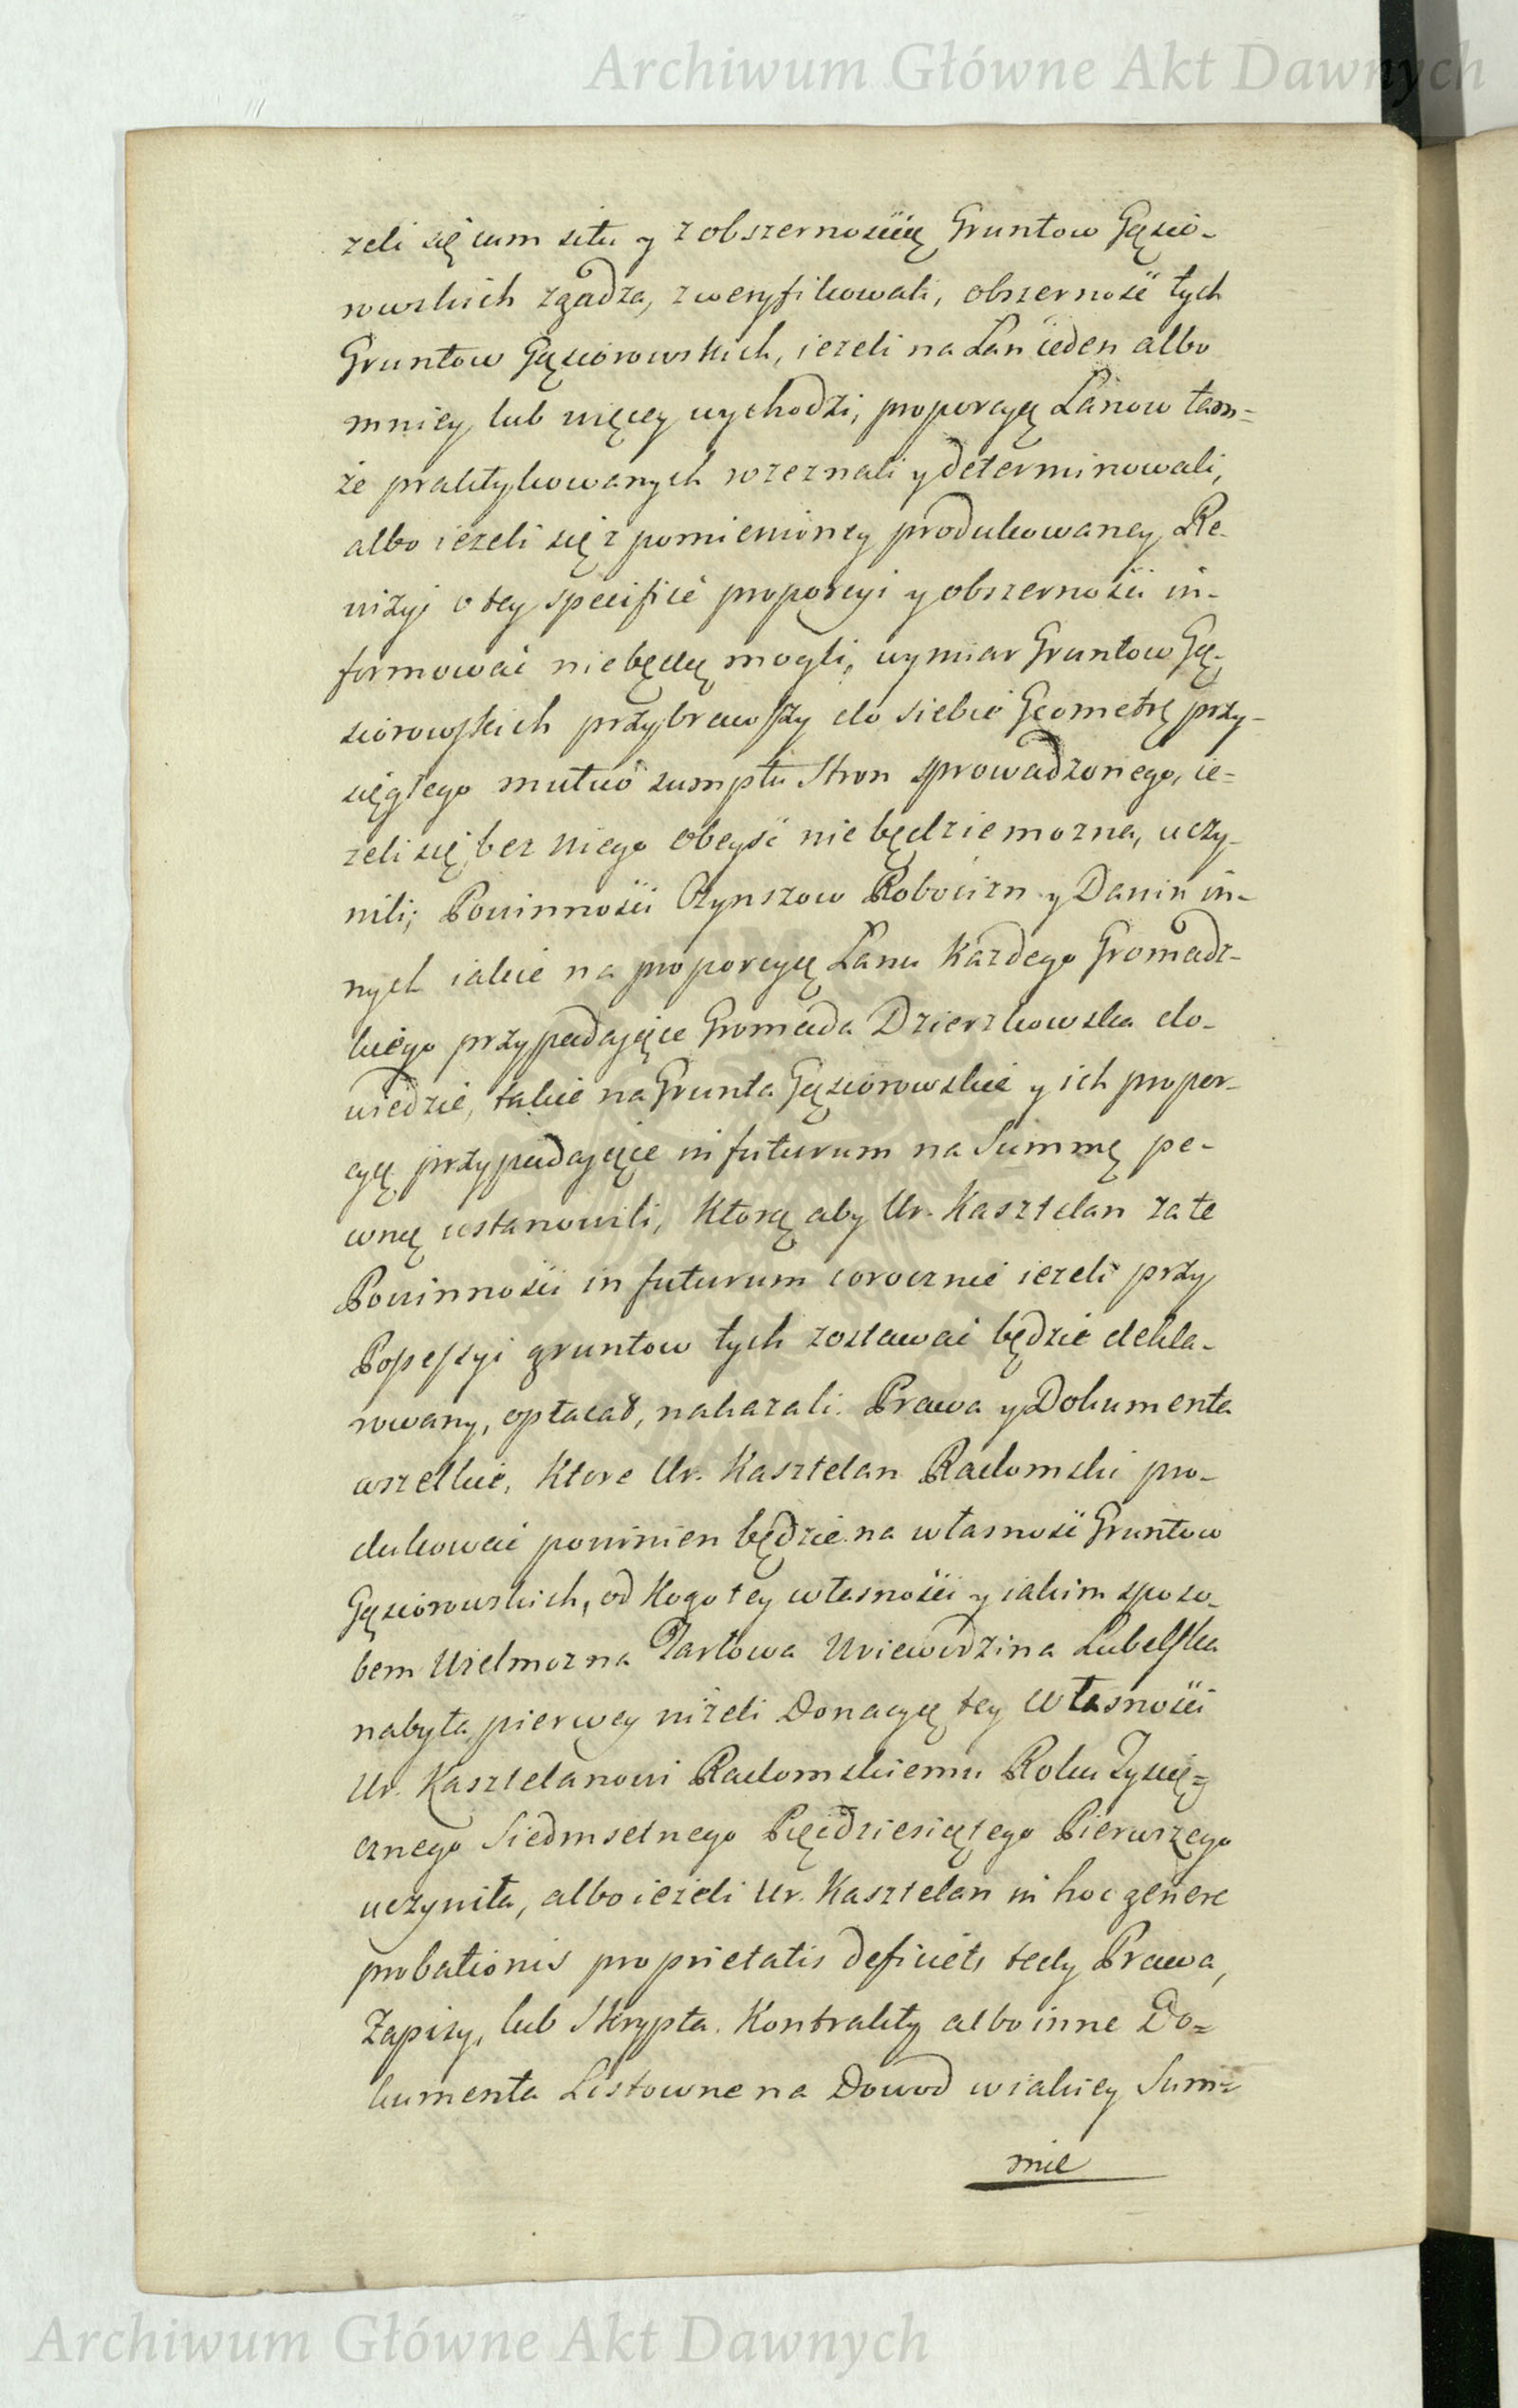 Archiwum Główne Akt Dawnych
zeli się cum situ y z obszernością Gruntow Gąsio-
rowskich zgadza, zweryfikowali, obszerność tych
Gruntow Gąsiorowskich, ieżeli na Łan ieden albo
mniey lub więcey wychodzi, proporcyą Łanow tam=
że praktykowanych rozeznali y determinowali,
albo ieżeli się z pomienioney produkowaney Re-
wizyi o tey specificè proporcyi y obszerności in-
formować niebędą mogli, wymiar Gruntow Gą-
siorowskich przybrawszy do siebie Geometrę przy-
sięgłego mutuo sumptu Stron sprowadzonego, ie=
żeli się bez niego obeyść nie będzie można, uczy-
nili; Powinności Czynszow Robocizn y Danin in-
nych iakie na proporcyą Łanu każdego Gromadz-
kiego przypadaiące Gromada Dzierzkowska do-
wiedzie, takie na Grunta Gąsiorowskie y ich propor-
cyą przypadaiące in futurum na Summę pe-
wną ustanowili, którą aby Ur. Kasztelan za te
Powinności in futurum corocznie ieżeli przy
Possessyi gruntow tych zostawać będzie dekla-
rowany, opłacał, nakazali. Prawa y Dokumenta
wszelkie, które Ur. Kasztelan Radomski pro-
dukować powinien będzie na własność Gruntow
Gąsiorowskich, od kogo tey własności y iakim sposo-
bem Wielmożna Tarłowa Woiewodzina Lubelska
nabyła pierwey niżeli Donacyą tey Własności
Ur. Kasztelanowi Radomskiemu Roku Tysią=
cznego Siedmsetnego Pięćdziesiątego Pierwszego
uczyniła, albo ieżeli Ur. Kasztelan in hoc genere
probationis proprietatis deficiet, tedy Prawa,
Zapisy, lub Skrypta, Kontrakty albo inne Do=
kumenta Listowne na Dowod w iakiey Sum=
mie
Archiwum Główne Akt Dawnych